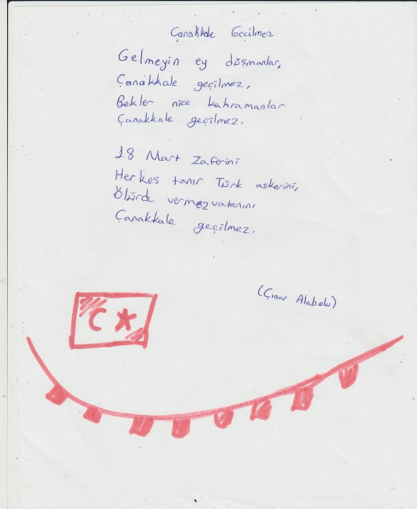 Çanakkale Geçilmez
Gelmeyin ey düşmanlar,
Çanakkale geçilmez,
Bekler nice kahramanlar
Çanakkale geçilmez.
18 Mart Zaferini
Herkes tanır Türk askerini,
Ölürde vermez vatanını
Çanakkale geçilmez.
(Çınar